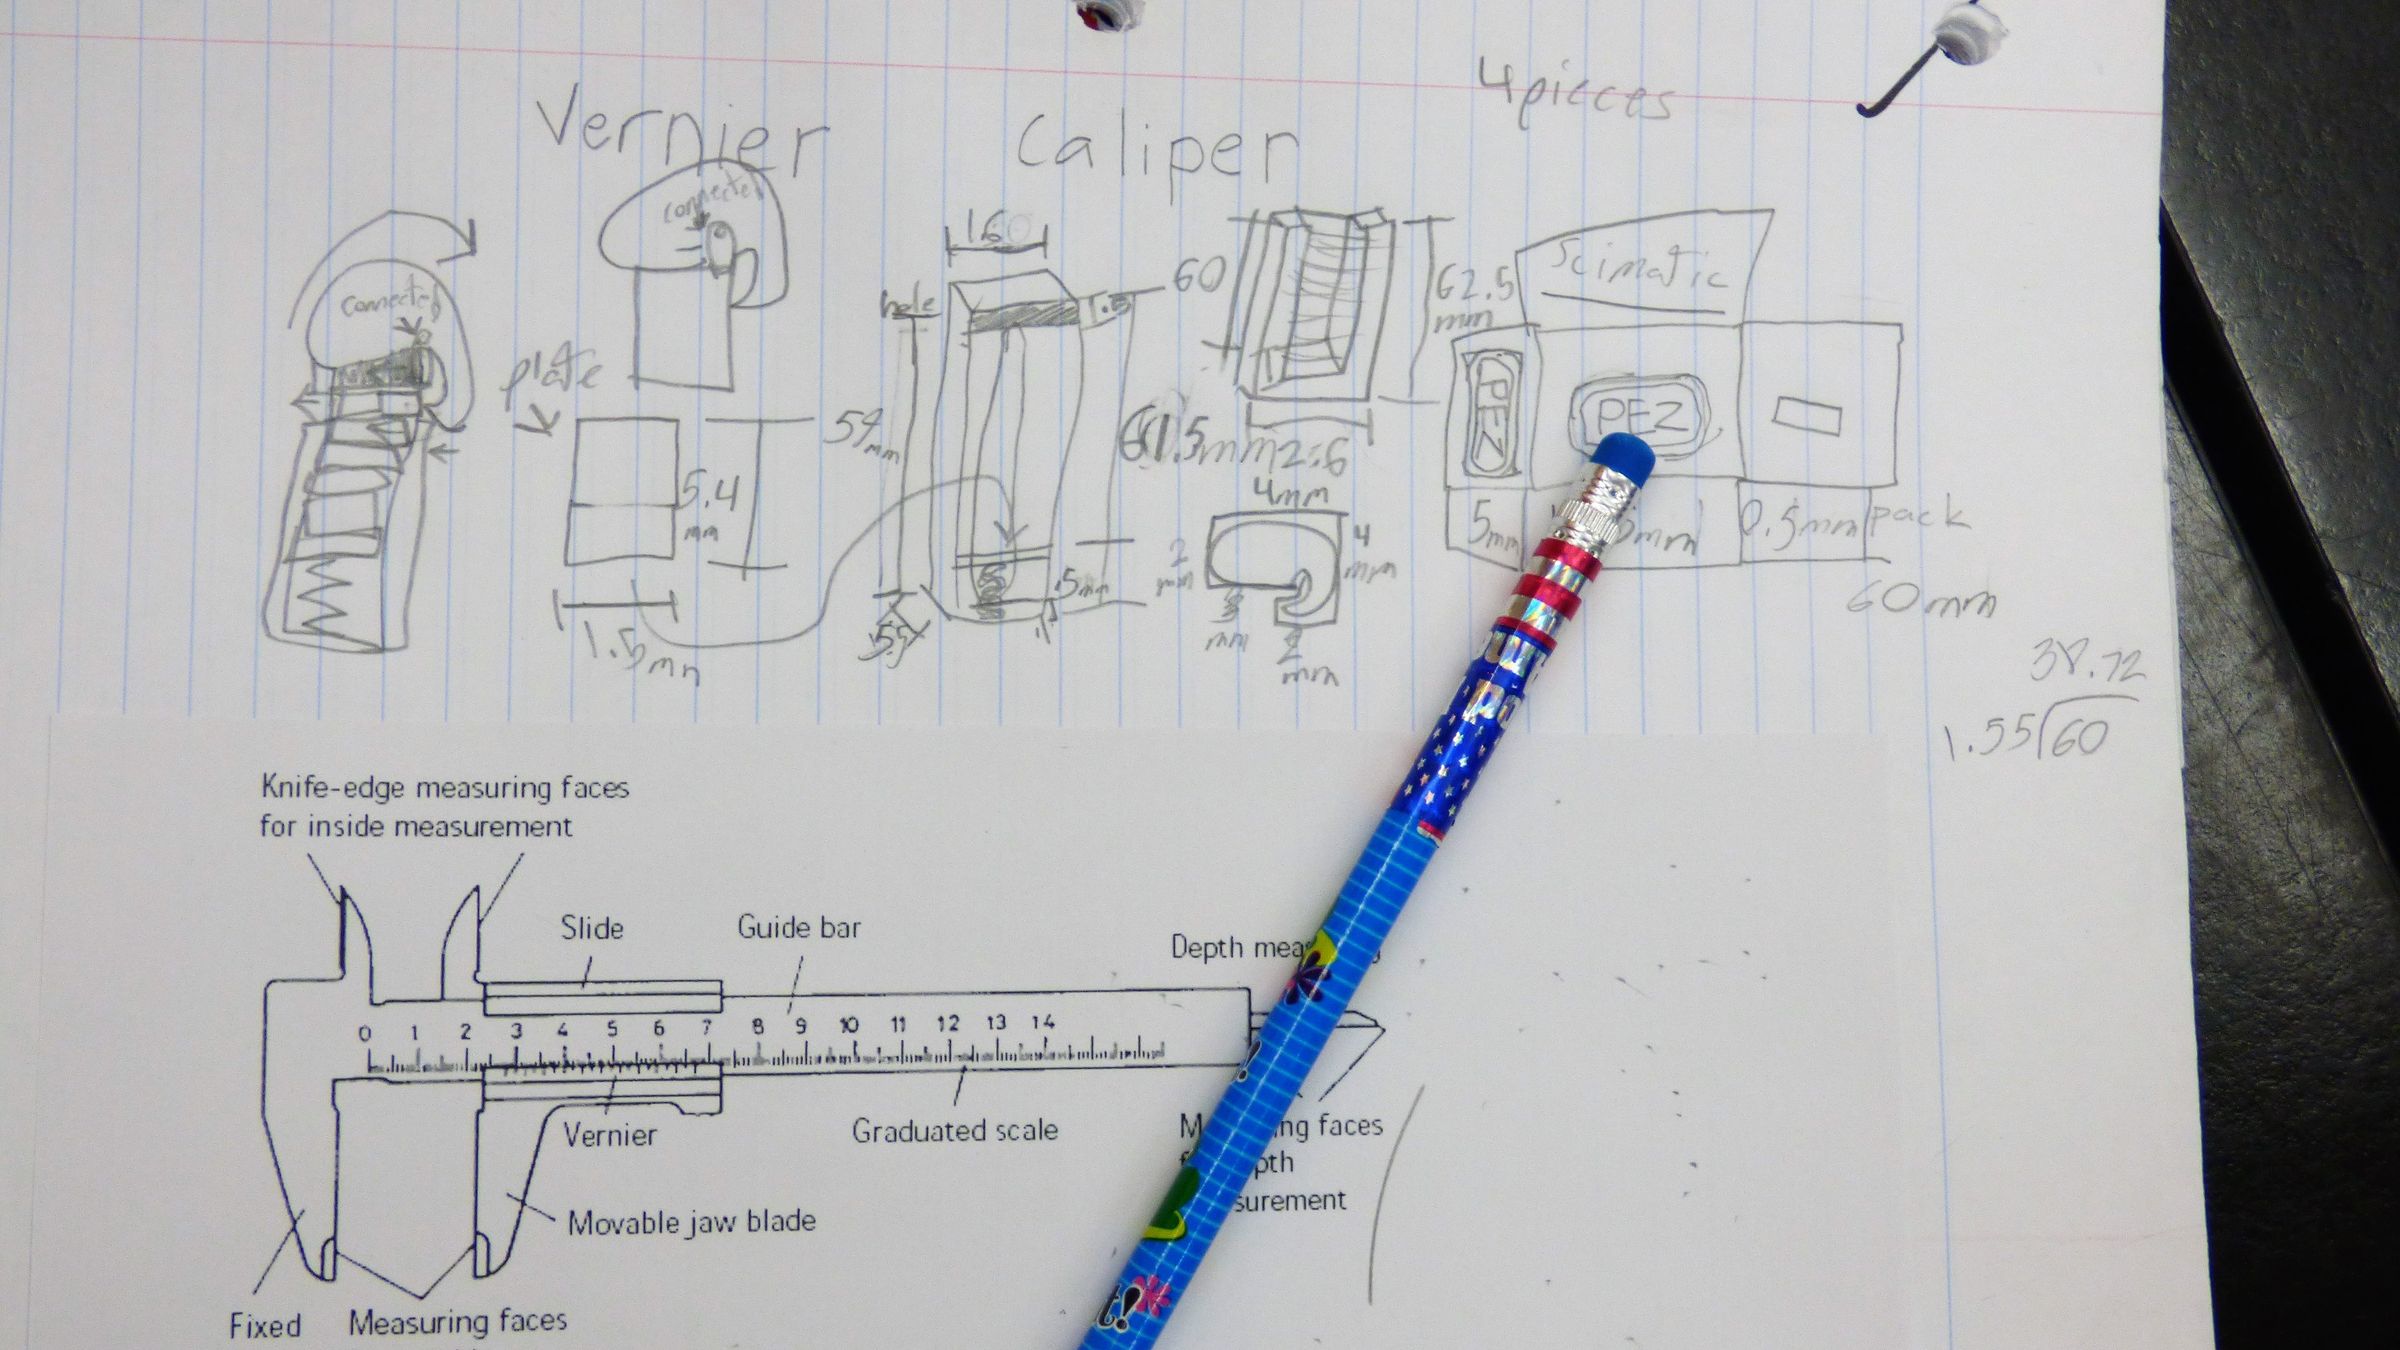 4 pieces
Vernier Caliper
connected
connected
1.60
hole
1.5
60
62.5
mm
Scimatic
plate
59
mm
61.5mm
2.6
PEZ
PEZ
5.4
mm
4mm
4
mm
2
mm
5mm
.5mm
0.5mm
pack
1.5mm
mm
2
mm
60mm
38.72
1.55 60
Knife-edge measuring faces
for inside measurement
Slide
Guide bar
Depth
0 1 2 3 4 5 6 7 8 9 10 11 12 13 14
Vernier
Graduated scale
ing faces
pth
surement
Movable jaw blade
Fixed
Measuring faces